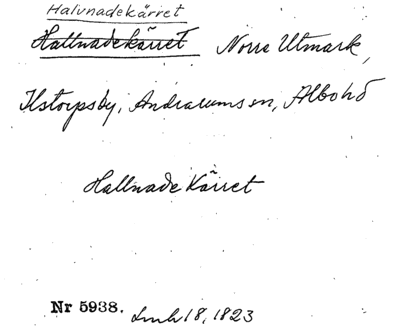 Halvnadekärret
Hallnadekärret Norra Utmark,
Ilstorpsby, Andrarums sn, Albo hd
Hallnade Kärret
Nr 5938. Lmh 18, 1823